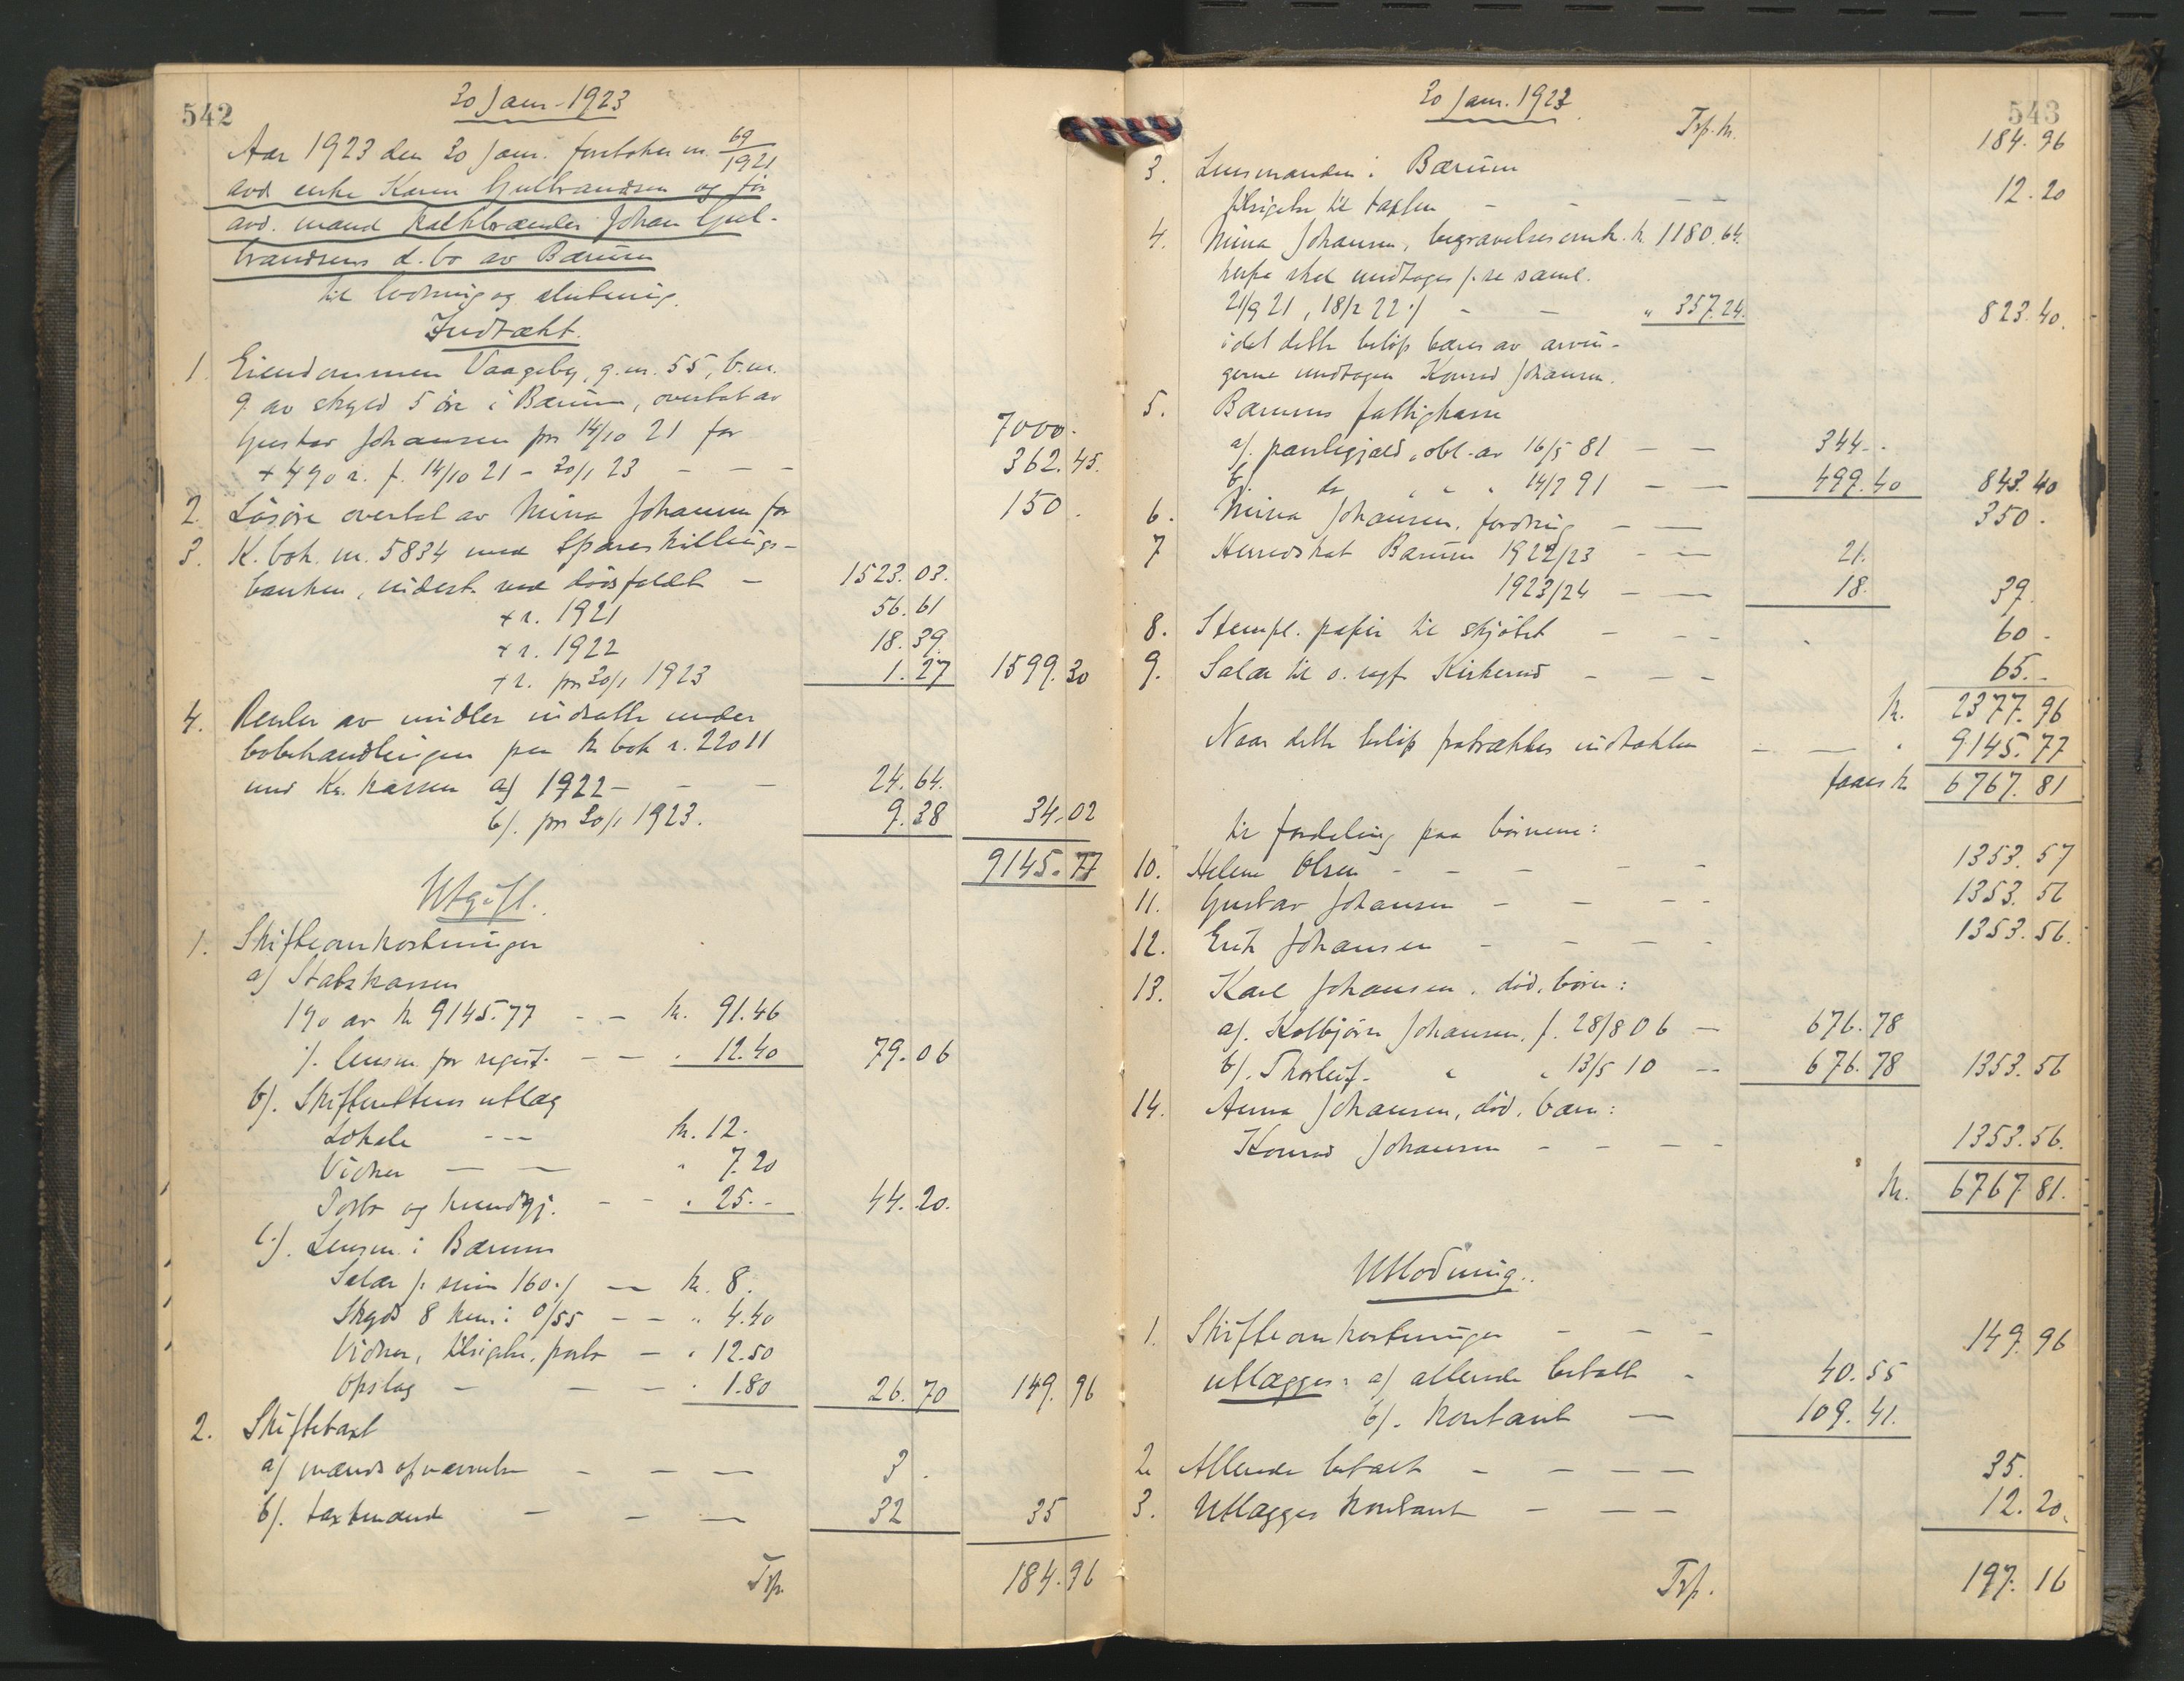 542
30 Jan. 1923
Aar 1923 den 30 Jan. foretokes nr. 69/1921
avd. enke Karen Gulbrandsen og før
avd. mand kalkbrænder Johan Gul-
brandsens d. bo av Bærum
til lodning og slutning.
Indtækt.
1. Eiendommen Vaageby, g.nr. 55, b.nr.
9 av skyld 5 øre i Bærum, overtat av
Gustav Johansen pr 14/10 21 for 7000.
+ 4% r. f. 14/10 21 - 30/1 23 - - - 362.45.
2. Løsøre overtat av Mina Johansen for 150.
3. K. bok. nr. 5834 med Spareskillings-
banken, indest. ved dødsfaldet - 1523.03.
+ r. 1921 56.61
+ r. 1922 18.39.
+ r. pr 30/1 1923 1.27 1599.30
4. Renter av midler indsatte under
bobehandlingen paa k bok r. 22011
med Kr. kassen a) 1922 - - - 24.64.
b). pr 30/1 1923. 9.38 34.02
9145.77
Utgift.
1. Skifteomkostninger
a) Statskassen
1% av kr 9145.77 - - kr. 91.46
./. lensm. for regist. - - " 12.40 79.06
b). Skifterettens utlæg
Lokale --- kr. 12.
Vidner — — " 7.20
Porto og kundgj. - - " 25.- 44.20.
c.). Lensm. i Bærum
Salær /: min 160 :/ — kr. 8.
Skyds 8 km. i 0/55 - - " 4.40
Vidner, tilsigelse, porto - " 12.50
Opslag - - - " 1.80 26.70 149.96
2. Skiftetaxt
a) mænds opnævnelse - - — 3.
b). taxtmænd - - — 32 35
Trp. 184.96
543
30 Jan. 1923.
Trp. kr. 184.96
3. Lensmanden i Bærum
tilsigelse til taxten - - - - 12.20
4. Mina Johansen, begravelsesomk. kr. 1180.64.
herfra skal undtages /: se saml.
21/9 21, 18/2 22 :/ - - " 357.24. 823.40.
idet dette beløp bæres av arvin-
gerne undtagen Konrad Johansen.
5. Bærums fattigkasse
a). pantegjæld, obl. av 16/5 81 - — 344.-
b). do " " " 14/7 91 - — 499.40 843.40
6. Mina Johansen, fordring - — 350.
7 Herredskat Bærum 1922/23 - — 21.
1923/24 - — 18. 39.
8. Stempl. papir til skjøtet - - - 60.
9. Salær til o. rsgf. Kirkerud - - - 65.-
kr. 2377.96
Naar dette beløp fratrækkes indtækten - — " 9145.77
faaes kr 6767.81
til fordeling paa børnene:
10. Helene Olsen - - - - - 1353.57
11. Gustav Johansen - - - - 1353.56
12. Erik Johansen - - - - 1353.56.
13. Karl Johansen, død, børn:
a). Kolbjørn Johansen, f. 28/8 06 — 676.78
b). Thorleif - " " 13/5 10 -- 676.78 1353.56
14. Anna Johansen, død, barn:
Konrad Johansen - - - - 1353.56.
kr. 6767.81.
Utlodning.
1. Skifteomkostninger - - - 149.96
utlægges: a) allerede betalt - 40.55
b). kontant — 109.41.
2. Allerede betalt - - - - 35.
3. Utlægges kontant - - - 12.20.
Trp. 197.16